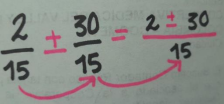 2/15 ± 30/15 = 2 ± 30/15